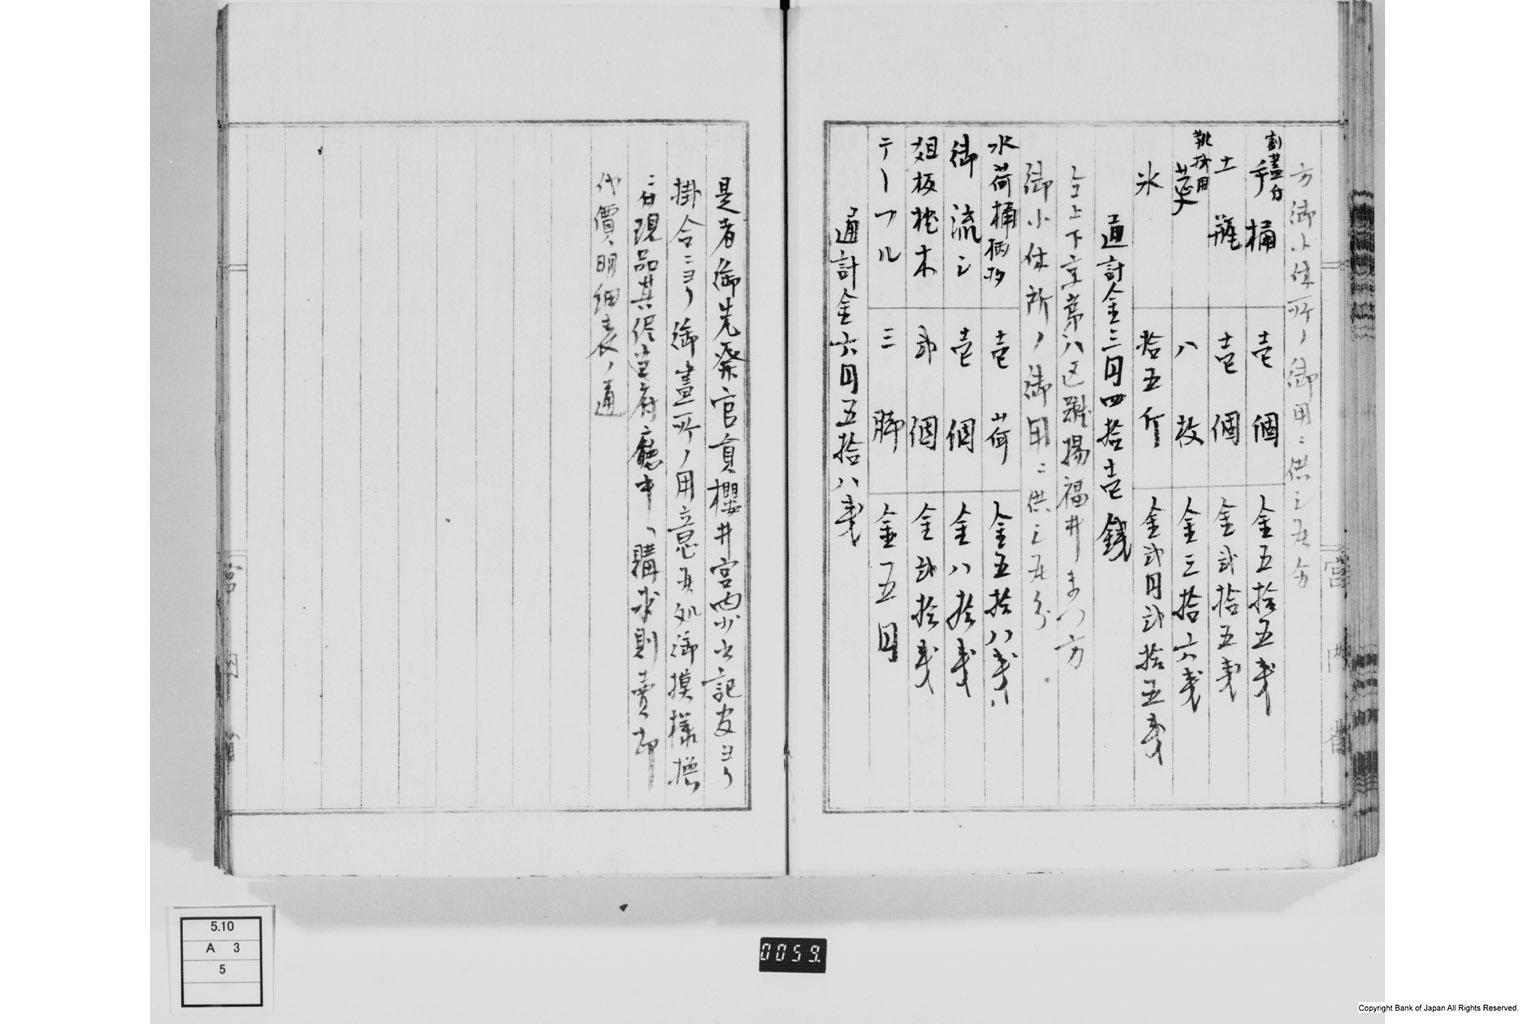 方御小休所ノ御用ニ供シ候分
割蓋分
手桶 壱個 金五拾五戔
土瓶 壱個 金弐拾五戔
靴拭用
八枚 金三拾六戔
氷 拾五斤 金弐円弐拾五戔
通計金三円四拾壱銭
上下京第八区蹴揚福井
御小休所ノ御用ニ供シ候分
水荷桶柄共 壱荷 金五拾八戔
御流シ 壱個 金八拾戔
爼板枕木 弐個 金弐拾戔
テーフル 三脚 金五円
通計金六円五拾八戔
宮内省
是者御先発官員櫻井宮内少書記官ヨリ
掛合ニヨリ御晝所ノ用意候処御摸様
現品其侭当府廳中ヘ購求則賣却
代價明細表ノ通
宮内省
5.10
A 3
5
0059.
Copyright Bank of Japan All Rights Reserved.